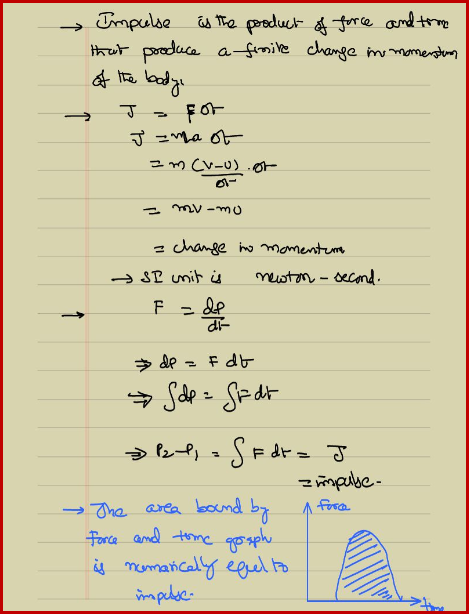 → Impulse is the product of force and time
that produce a finite change in momentum
of the body.
→ J = F δt
J = ma δt
= m (v-u)/δt . δt
= mv - mu
= change in momentum
→ SI unit is newton-second.
→ F = dp/dt
⇒ dp = F dt
⇒ ∫dp = ∫F dt
⇒ P2-P1 = ∫ F dt = J
= impulse.
→ The area bound by
Force and time graph
is numarically equal to
impulse.
Force
time